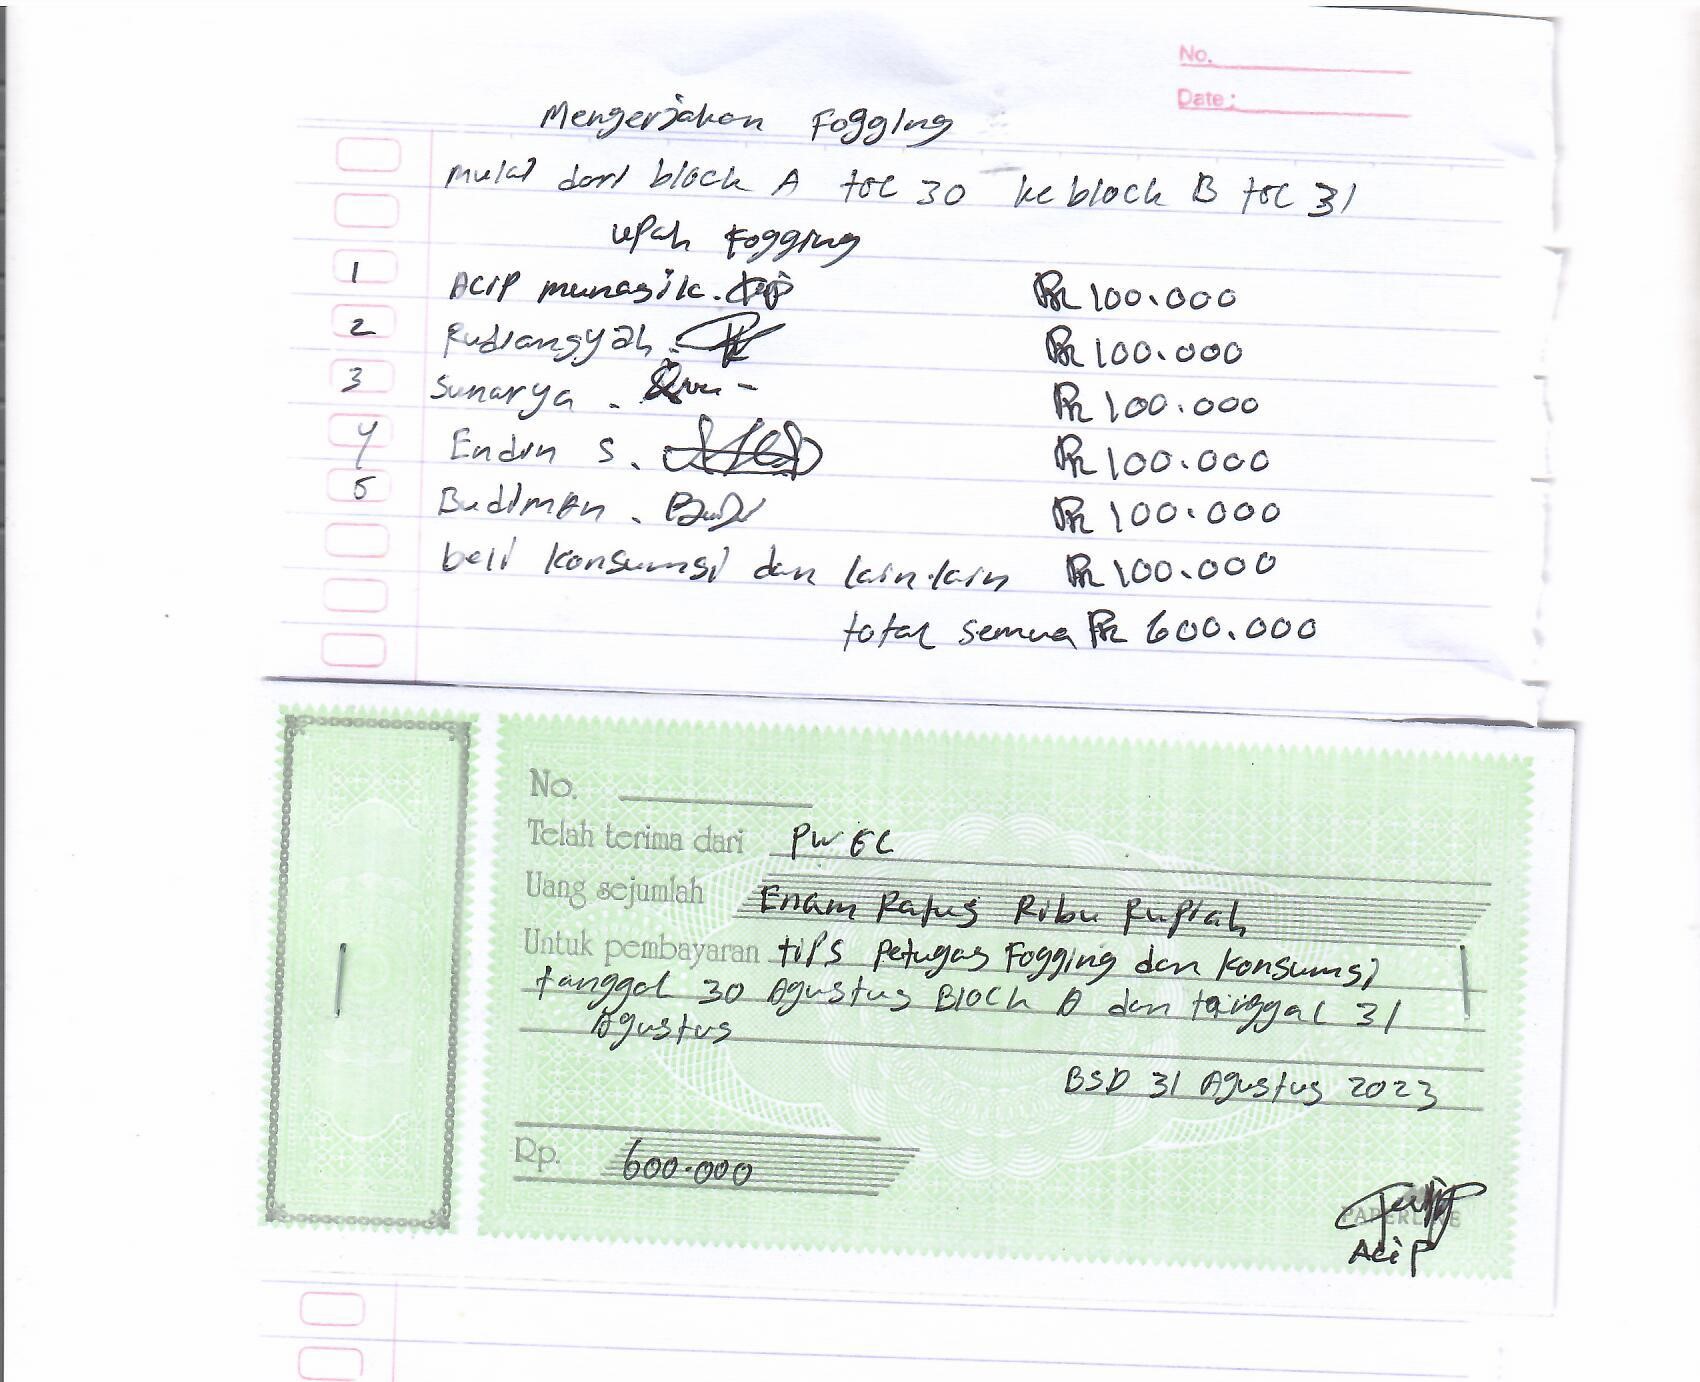 No.
Date :
Mengerjakan Fogging
mulai dari block A tgl 30 ke block B tgl 31
upah Fogging
1 Acip munasik. Rp 100.000
2 Rudiansyah. Rp 100.000
3 Sunarya. Rp 100.000
4 Endin S. Rp 100.000
5 Budiman. Rp 100.000
beli konsumsi dan lain-lain Rp 100.000
total semua Rp 600.000
No.
Telah terima dari PWEC
Uang sejumlah Enam Ratus Ribu Rupiah
Untuk pembayaran tips petugas Fogging dan konsumsi
tanggal 30 Agustus Block A dan tanggal 31
Agustus
BSD 31 Agustus 2023
Rp. 600.000
PAPERLINE
Acip